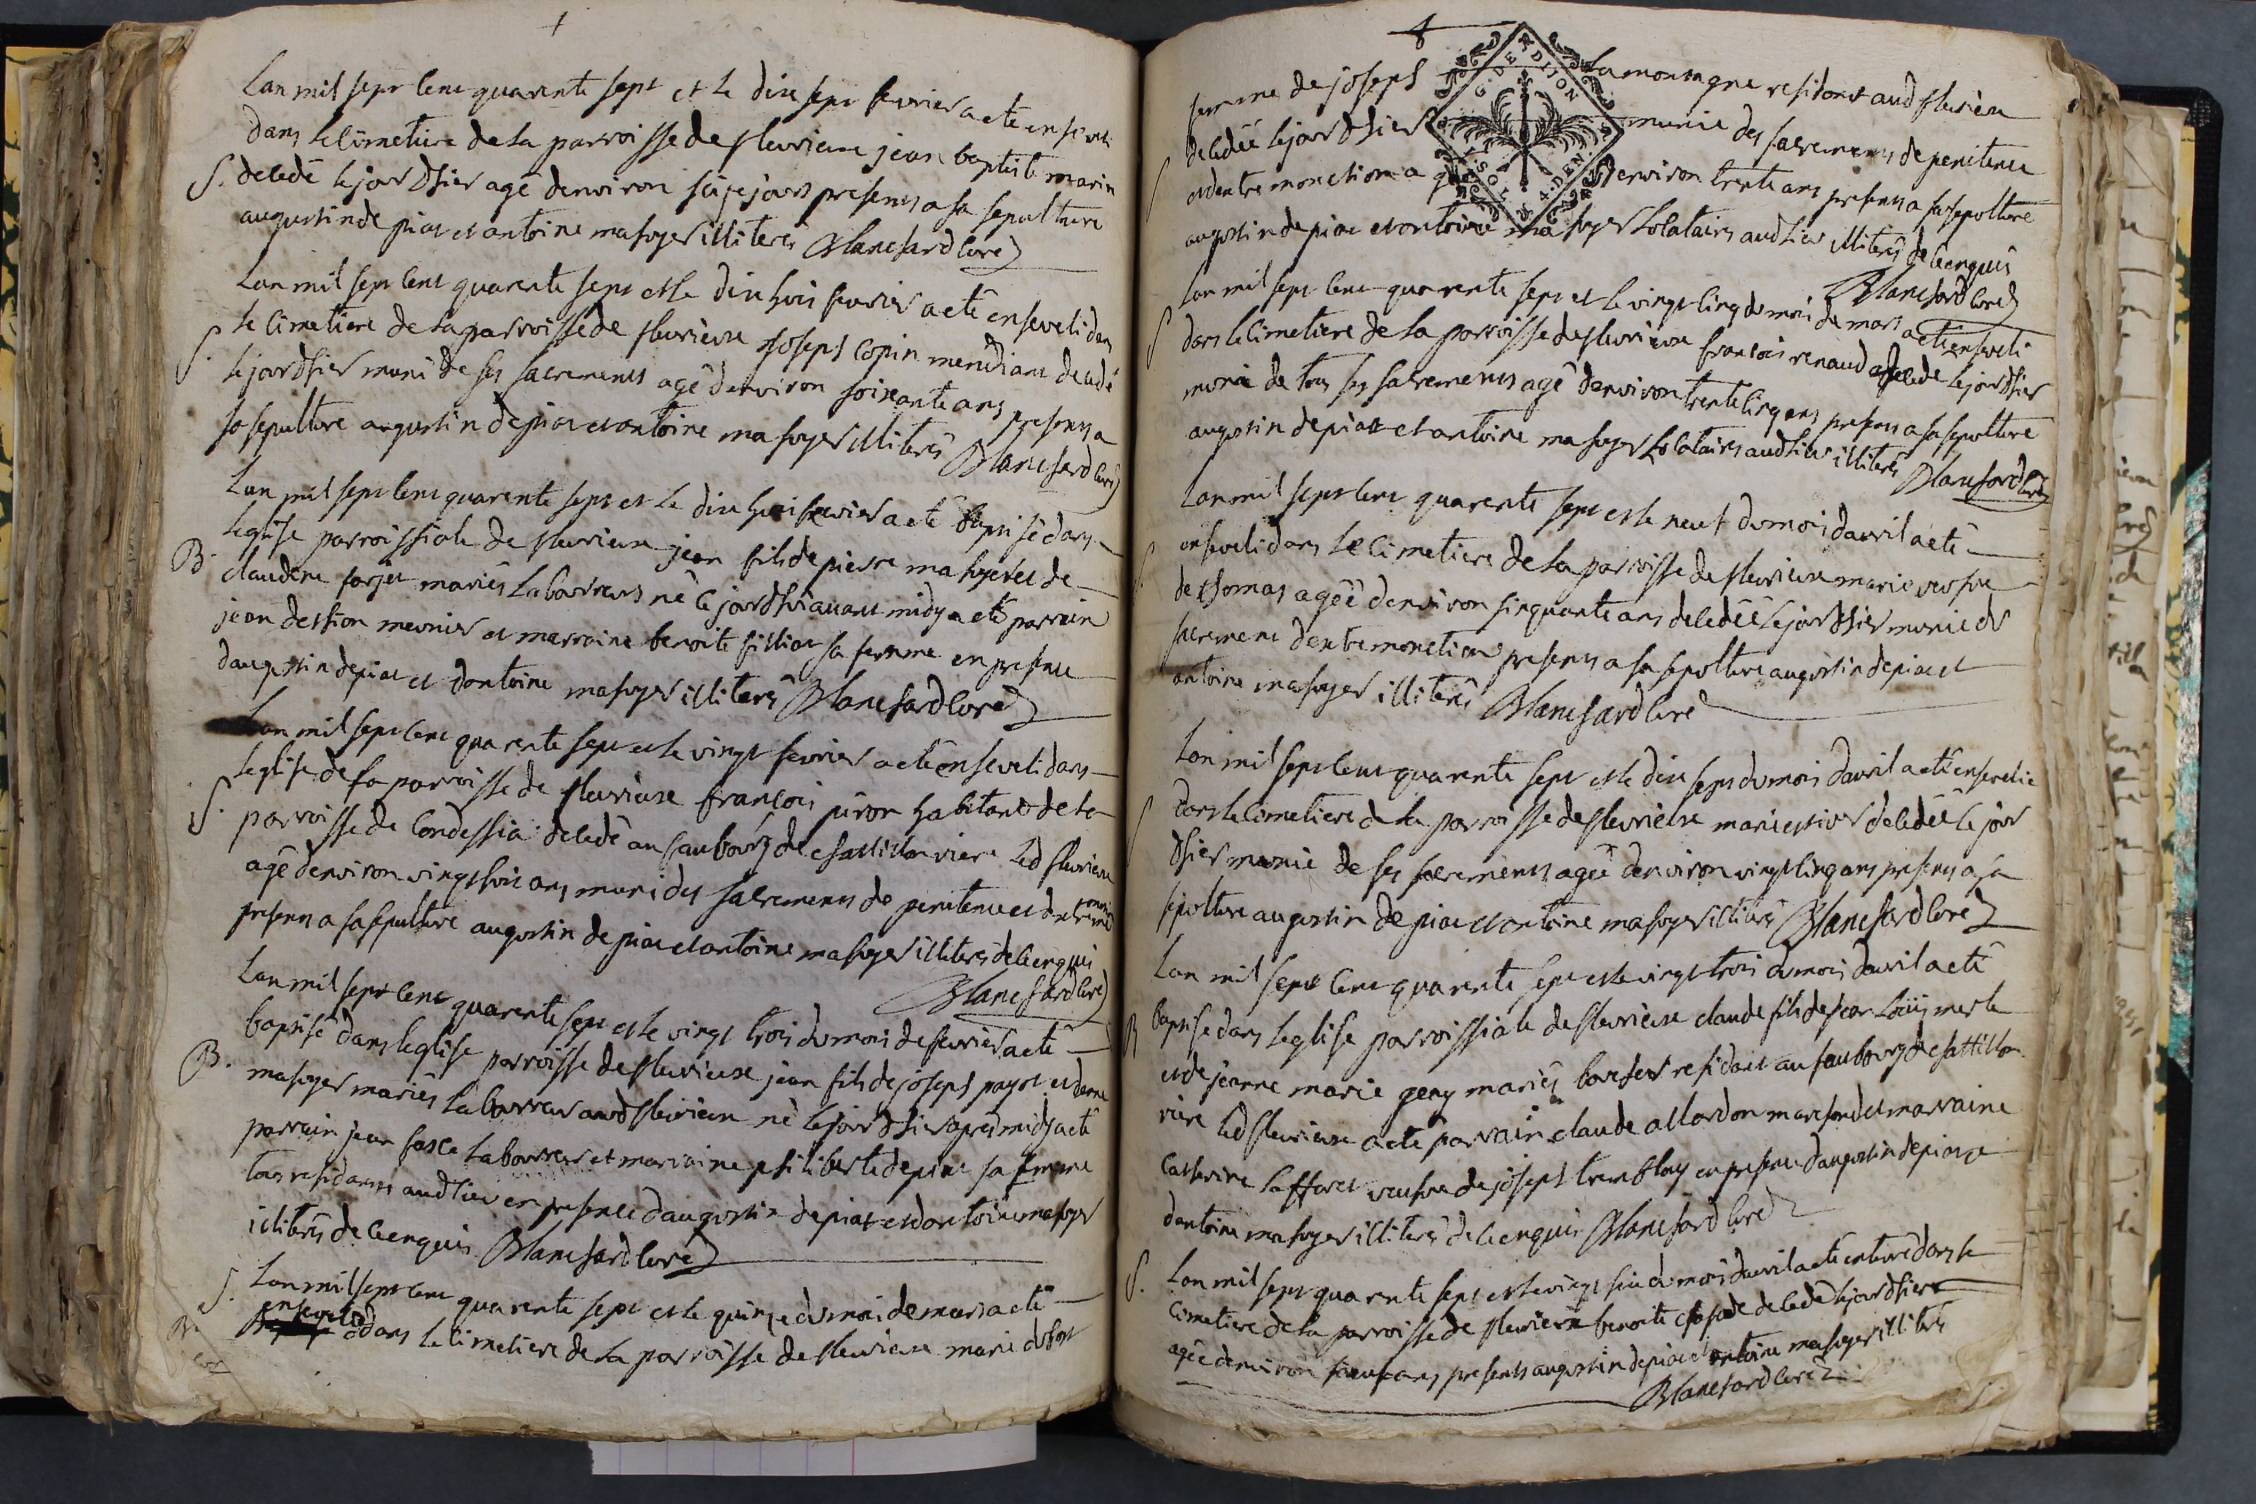 Lan mil sept cent quarente sept et le dix sept fevrier a eté enseveli
dans le cimetiere de la parroisse de fleurieux jean baptiste marin
S. decedé le jour dhier agé denviron seize jours presents a sa sepulture
augustin depiat et antoine mahuyer illiterés Blanchard curé
Lan mil sept cent quarente sept et le dix huit fevrier a eté enseveli dans
le cimetiere de la parroisse de fleurieux joseph copin mendiant decedé
S. le jour dhier muni de ses sacrements agé denviron soixante ans presents a
sa sepulture augustin depiat et antoine mahuyer illiterés Blanchard curé
Lan mil sept cent quarente sept et le dix huit fevrier a eté baptisé dans
leglise parroissiale de fleurieux jean fils de pierre mahuyer et de
B. claudine forjet mariés laboureurs né ce jourdhui avant midy a eté parrain
jean meunier et marraine benoite filliat sa femme en presence
daugustin depiat et dantoine mahuyer illiterés Blanchard curé
Lan mil sept cent quarente sept et le vingt fevrier a eté enseveli dans
leglise de la parroisse de fleurieux francois piron habitant de la
S. parroisse de Condessia decedé au faubourg de chatillon riere led fleurieux
agé denviron vingt huit ans muni des sacrements de penitence et dextreme onction
presents a sa sepulture augustin depiat et antoine mahuyer illiterés de ce enquis
Blanchard curé
Lan mil sept cent quarente sept et le vingt trois du mois de fevrier a eté
baptisé dans leglise parroisse de fleurieux jean fils de joseph payot et danne
B. mahuyer mariés laboureur aud fleurieux né le jour dhier apres midy a eté
parrain jean laboureur et marraine philiberte depiat sa femme
tous residants aud lieu en presence daugustin depiat et dantoine mahuyer
illiterés de ce enquis Blanchard curé
S. Lan mil sept cent quarente sept et le quinze du moi de mars a eté
enseveli dans le cimetiere de la parroisse de fleurieux marie dufort
femme de joseph Lamontagne residant aud fleurieux
S decedée le jour dhier munie des sacrements de penitence
et dextreme onction agée denviron trente ans presents a sa sepolture
augustin depiat et antoine mahuyer Lolatairs aud lieu illiterés de ce enquis
Blanchard curé
Lan mil sept cent quarente sept et le vingt cinq du moi de mars a eté enseveli
S dans le cimetiere de la parroisse de fleurieux francois renaud decedé le jour dhier
munie de tous ses sacrements agé denviron trente cinq ans presents a sa sepolture
augustin depiat et antoine mahuyer Lolatairs aud lieu illiterés Blanchard curé
Lan mil sept cent quarente sept et le neuf du mois davril a eté
S. enseveli dans le cimetiere de la parroisse de fleurieux marie veufve
de thomas agéé denviron sinquante ans decedéé le jour dhier munie du
sacrement dextremonction presents a sa sepolture augustin depiat et
antoine mahuyer illiterés Blanchard curé
Lan mil sept cent quarente sept et le dix sept du mois davril a eté ensevelie
S dans le cimetiere de la parroisse de fleurieux marie decedéé le jour
dhier munie de ses sacrements agéé denviron vingt cinq ans presents a sa
sepolture augustin depiat et antoine mahuyer illiterés Blanchard curé
Lan mil sept cent quarente sept et le vingt trois du mois davril a eté
B baptisé dans leglise parroissiale de fleurieux claude fils de jean Louis merle
et de jeanne marie geny mariés boucher residant au faubourg de chattillon
riere led fleurieux a eté parrain claude allardon marchand et marraine
Catherine Laffaret veufve de joseph tremblay en presence daugustin depiat
dantoine mahuyer illiterés de ce enquis Blanchard curé
S. Lan mil sept quarente sept et le vingt six du mois davril a eté enterré dans le
cimetiere de la parroisse de fleurieux benoite decedé le jour dhier
agée denviron ans presents augustin depiat et antoine mahuyer illiterés
Blanchard curé
G. DE DIJON
4. DEN